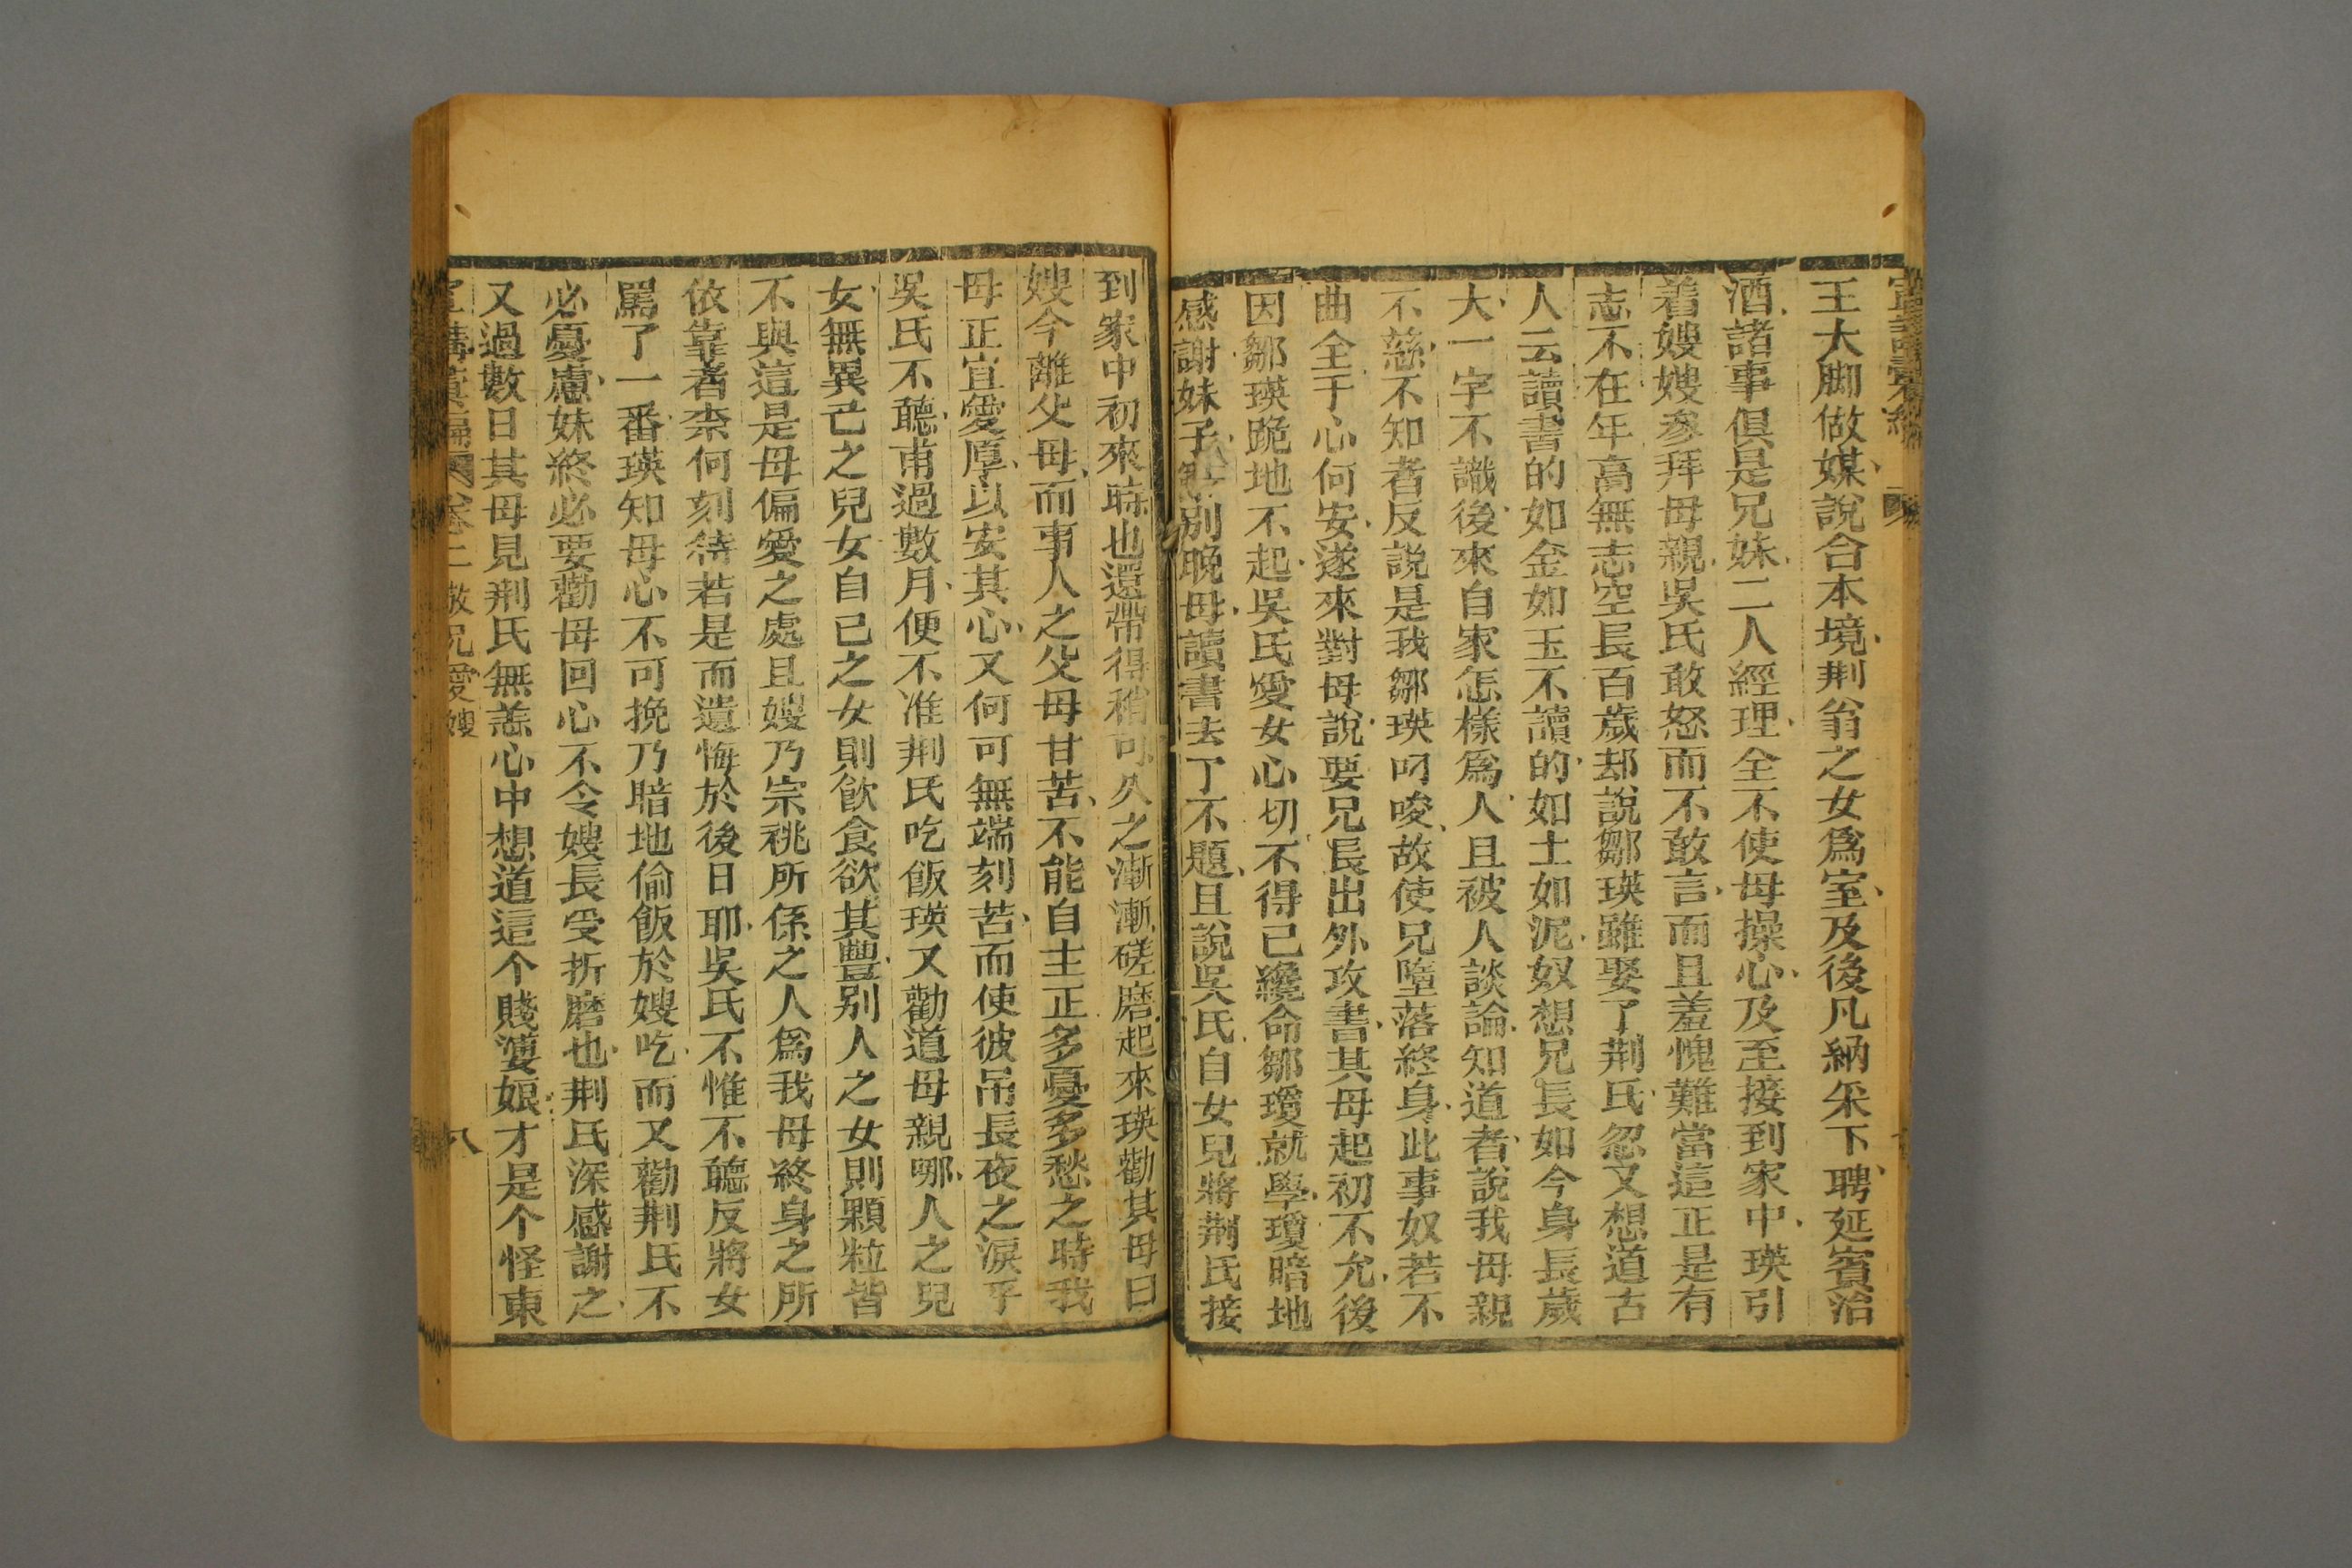 王大脚做媒說合本境荆翁之女為室及後凡納采下聘延賓治
酒諸事俱是兄妹二人經理全不使母操心及至接到家中瑛引
着嫂嫂參拜母親吳氏敢怒而不敢言而且羞愧難當這正是有
志不在年高無志空長百歲却說鄒瑛雖娶了荆氏忽又想道古
人云讀書的如金如玉不讀的如土如泥奴想兄長如今身長歲
大一字不識後來自家怎樣為人且被人談論知道者說我母親
不慈不知者反說是我鄒瑛叼唆故使兄墮落終身此事奴若不
曲全于心何安遂來對母說要兄長出外攻書其母起初不允後
因鄒瑛跪地不起吳氏愛女心切不得已纔命鄒瓊就學瓊暗地
感謝妹子辭別晚母讀書去了不題且說吳氏自女兒將荆氏接
到家中初來時也還帶得稍可久之漸漸磋磨起來瑛勸其母曰
嫂今離父母而事人之父母甘苦不能自主正多憂多愁之時我
母正宜愛厚以安其心又何可無端刻苦而使彼吊長夜之淚乎
吳氏不聽甫過數月便不准荆氏吃飯瑛又勸道母親哪人之兒
女無異己之兒女自己之女則飲食欲其豐別人之女則顆粒皆
不與這是母偏愛之處且嫂乃宗祧所係之人為我母終身之所
依靠者柰何刻待若是而遺悔於後日耶吳氏不惟不聽反將女
罵了一番瑛知母心不可挽乃暗地偷飯於嫂吃而又勸荆氏不
必憂慮妹終必要勸母回心不令嫂長受折磨也荆氏深感謝之
又過數日其母見荆氏無恙心中想道這个賤婆娘才是个怪東
敬兄愛嫂
八